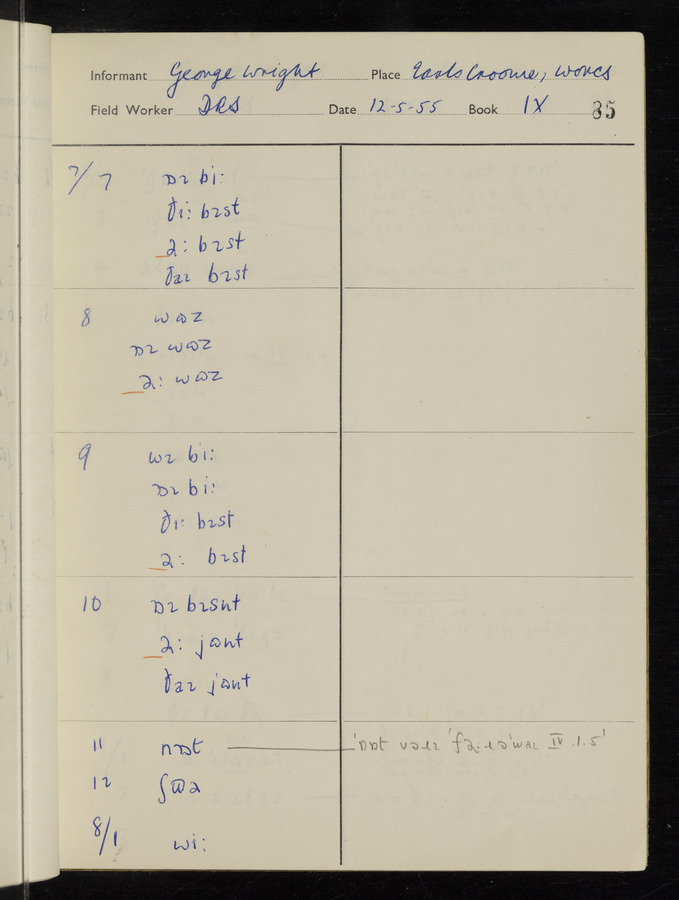 Informant George Wright Place Earls Croome, Worcs
Field Worker DRS Date 12-5-55 Book IX 85
7/7 ɒɪ bi:
ði: bɪst
ə: bɪst
ðaɪ bɪst
8 wɒz
ɒɪ wɒz
ə: wɒz
9 wɪ bi:
ɒɪ bi:
ði: bɪst
ə: bɪst
10 ɒɪ bɪsnt
ə: jɒnt
ðaɪ jɒnt
11 nɒt 'nɒt IV.1.5'
12
8/1 wi: